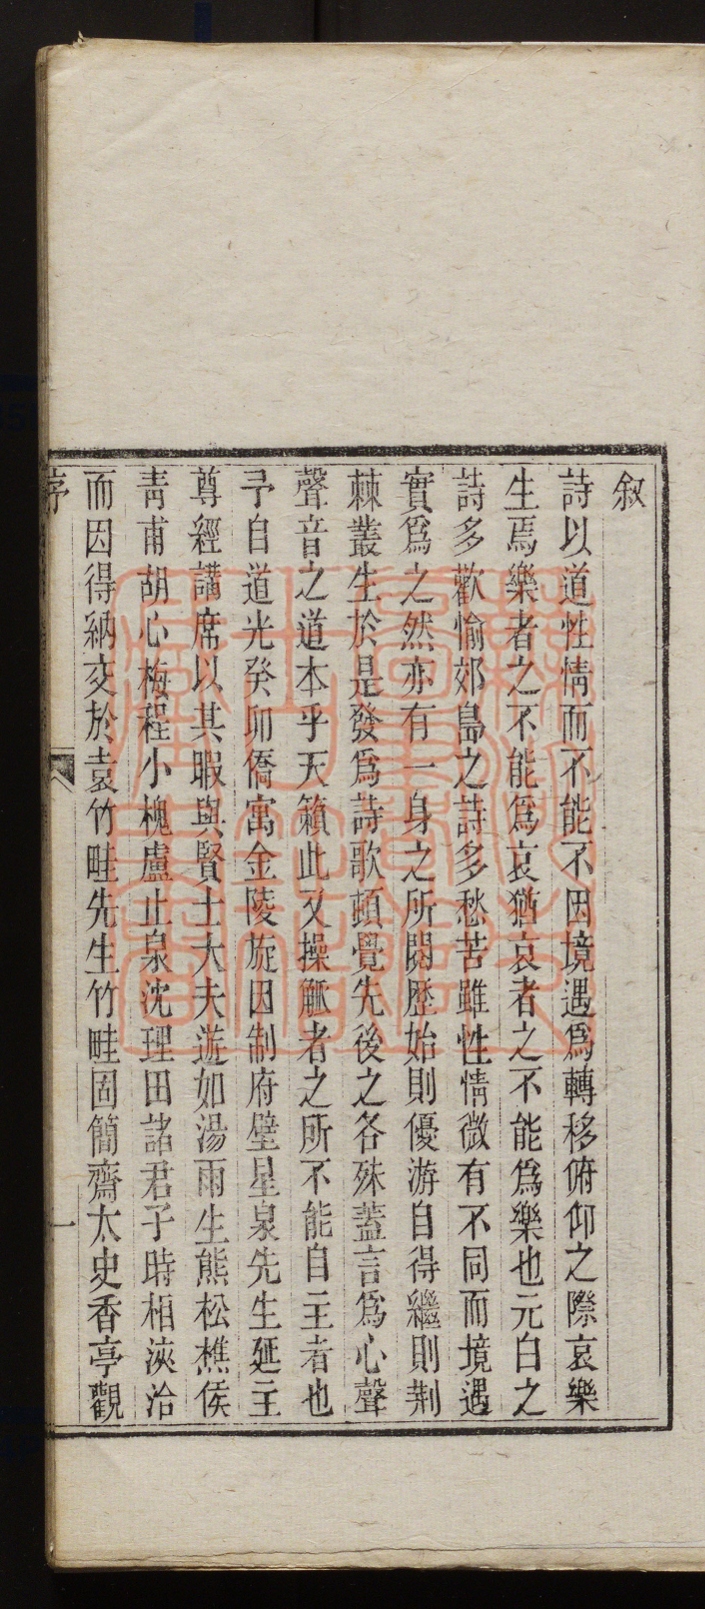 叙
詩以道性情而不能不因境遇爲轉移俯仰之際哀樂
生焉樂者之不能爲哀猶哀者之不能爲樂也元白之
詩多歡愉郊島之詩多愁苦雖性情微有不同而境遇
實爲之然亦有一身之所閱歷始則優游自得繼則荆
棘叢生於是發爲詩歌頓覺先後之各殊蓋言爲心聲
聲音之道本乎天籟此又操觚者之所不能自主者也
予自道光癸卯僑寓金陵旋因制府璧星泉先生延主
尊經講席以其暇與賢士大夫遊如湯雨生熊松樵侯
靑甫胡心梅程小槐盧止泉沈理田諸君子時相浹洽
而因得納交於袁竹畦先生竹畦固簡齋太史香亭觀
序
一